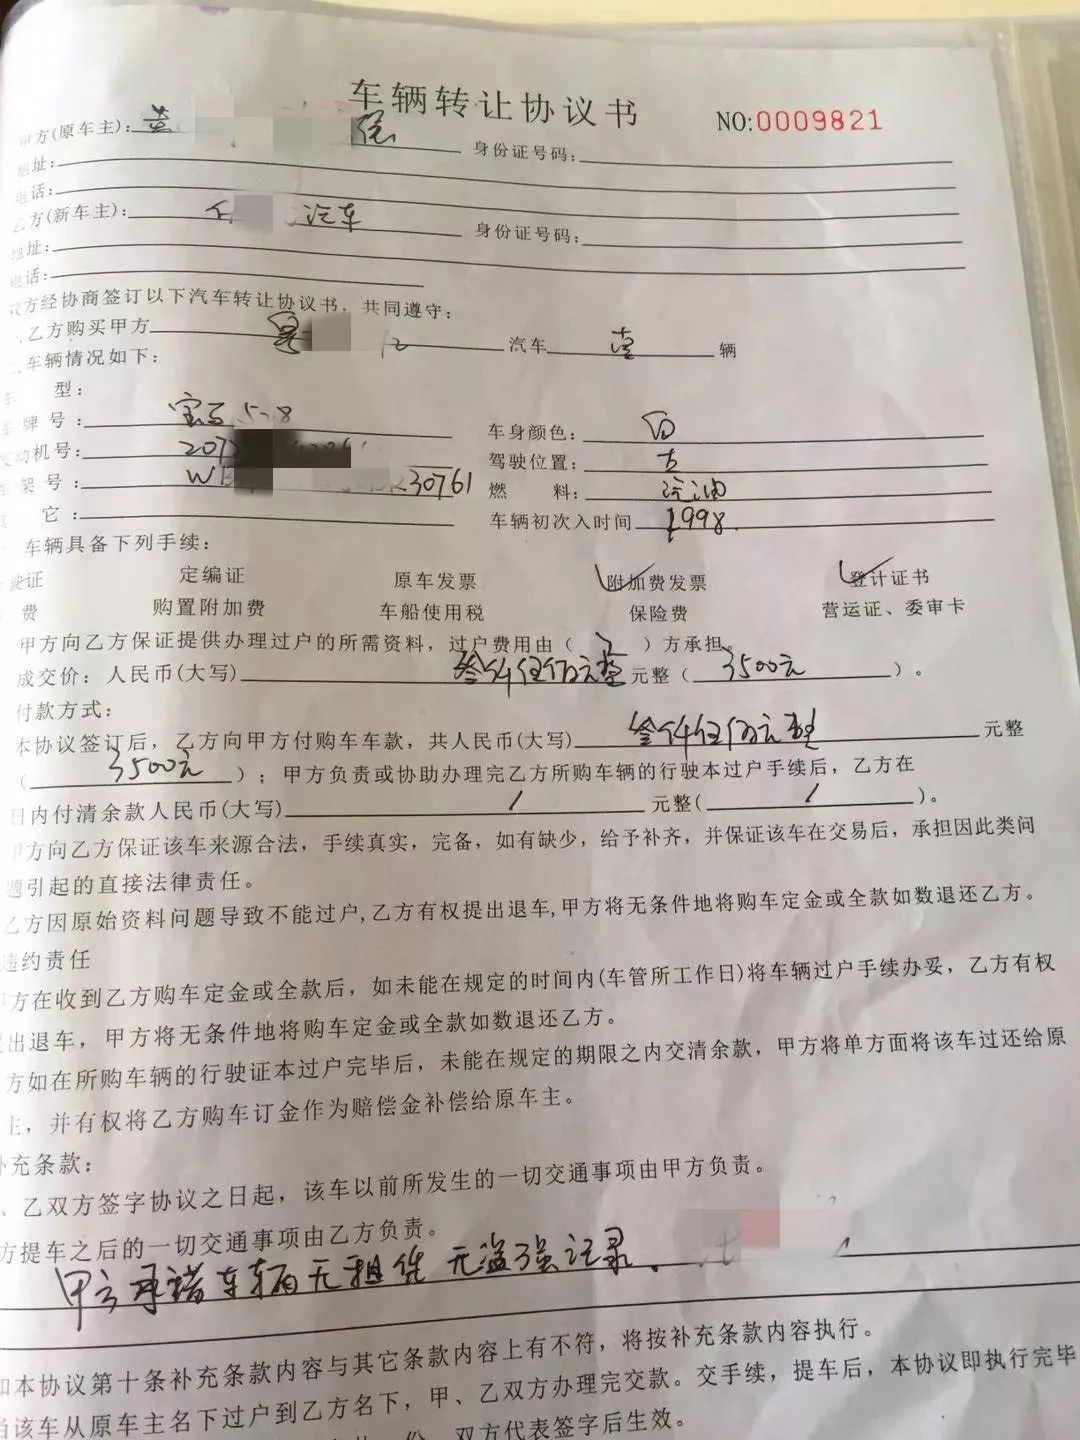 车辆转让协议书
NO:0009821
方(原车主): 黄 强 身份证号码:
地址:
电话:
乙方(新车主): 汽车 身份证号码:
地址:
电话:
双方经协商签订以下汽车转让协议书，共同遵守:
乙方购买甲方 汽车 壹 辆
车辆情况如下:
型:
牌号: 宝马528 车身颜色: 白
发动机号: 207 驾驶位置: 左
车架号: W 30761 燃 料: 汽油
其 它: 车辆初次入时间 1998.
车辆具备下列手续:
驶证 定编证 原车发票 附加费发票 登计证书
费 购置附加费 车船使用税 保险费 营运证、委审卡
甲方向乙方保证提供办理过户的所需资料，过户费用由（ 乙 ）方承担。
成交价: 人民币(大写) 叁仟伍佰元整 元整（ 3500元 ）。
付款方式:
本协议签订后，乙方向甲方付购车车款，共人民币(大写) 叁仟伍佰元整 元整
（ 3500元 ）; 甲方负责或协助办理完乙方所购车辆的行驶本过户手续后，乙方在
日内付清余款人民币(大写) / 元整( / )。
甲方向乙方保证该车来源合法，手续真实，完备，如有缺少，给予补齐，并保证该车在交易后，承担因此类问
题引起的直接法律责任。
乙方因原始资料问题导致不能过户,乙方有权提出退车,甲方将无条件地将购车定金或全款如数退还乙方。
违约责任
甲方在收到乙方购车定金或全款后，如未能在规定的时间内(车管所工作日)将车辆过户手续办妥，乙方有权
提出退车，甲方将无条件地将购车定金或全款如数退还乙方。
方如在所购车辆的行驶证本过户完毕后，未能在规定的期限之内交清余款，甲方将单方面将该车过还给原
主，并有权将乙方购车订金作为赔偿金补偿给原车主。
补充条款:
、乙双方签字协议之日起，该车以前所发生的一切交通事项由甲方负责。
方提车之后的一切交通事项由乙方负责。
甲方承诺车辆无租借 无盗强记录.
如本协议第十条补充条款内容与其它条款内容上有不符，将按补充条款内容执行。
当该车从原车主名下过户到乙方名下，甲、乙双方办理完交款。交手续，提车后，本协议即执行完毕
份，双方代表签字后生效。